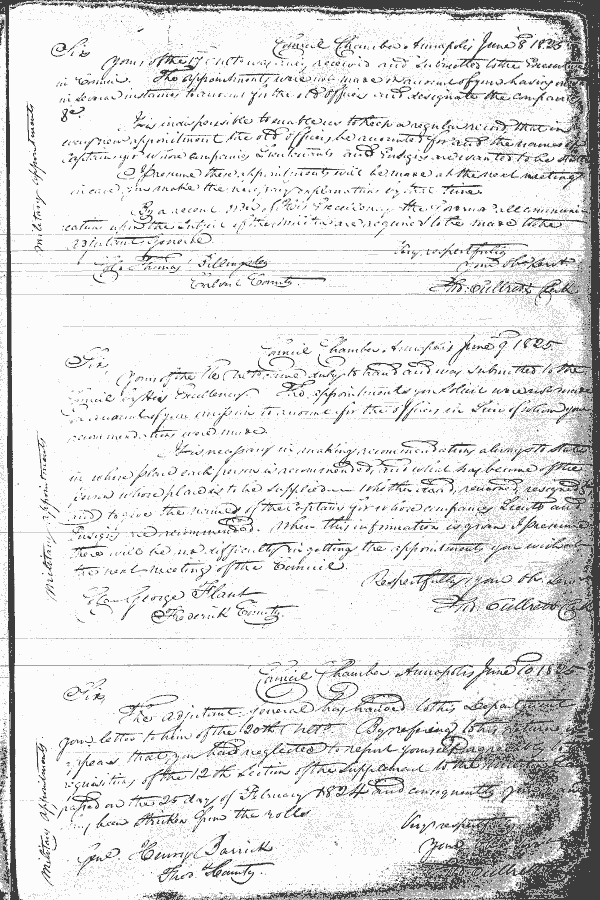 Council Chamber Annapolis June 8 1825
Sir
Yours of the 17 Ulto was duly received and submitted to the Executive
in Council. The appointments were not made on account of your having
in some instances to account for the old officers and designate the companies
&c.
It is indispensible to enable us to keep a regular record that in
every new appointment the old officers be accounted for and the names of
Captains for whose companies Lieutenants and Ensigns are wanted to be stated
I presume these appointments will be made at the next meeting
in case you make the necessary explanation by that time.
By a recent order of His Excellency the Governor all communi-
cations upon the subject of the militia are required to be made to the
Adjutant General
Very respectfully
your Ob. Servt
Colo. Thomas Billingsley
Calvert County.
Tho. Culbreth Clk
Military Appointments
Council Chamber Annapolis June 9 1825
Sir,
Yours of the Ulto came duly to hand and was submitted to the
Council by His Excellency. The appointments you solicit were not made
on account of your omission to account for the officers in lieu of whom your
recommendations were made.
It is necessary in making recommendations always to state
in whose place each person is recommended, and what has become of the
person whose place is to be supplied Whether dead, removed, resigned &c
and to give the names of the Captains for whose companies Lieuts and
Ensigns are recommended. When this information is given I presume
there will be no difficulty in getting the appointments you wish at
the next meeting of the Council.
Respectfully your Ob. Servt
Colo George
Frederick County.
Tho. Culbreth Clk
Military Appointments
Council Chamber Annapolis June 10 1825
Sir,
The adjutant general has handed to this Department
your letter to him of the 20th Ulto. By referring to his return it
appears that you had neglected to report yourself agreeably to the
requisitions of the 12th Section of the Supplement to the Militia
passed on the 25 day of February 1824 and consequently your name
has been stricken from the rolls
Very respectfully
Your
Genl. Henry
County.
Tho. Culbreth
Military Appointments